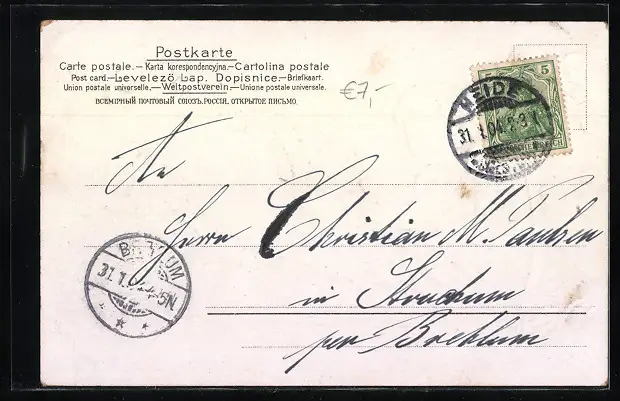 Postkarte
Carte postale.—Karta korespondencyjna.—Cartolina postale
Post card.—Levelezö Lap. Dopisnice.—Briefkaart.
Union postale universelle.—Weltpostverein—Unione postale universale.
ВСЕМІРНЫЙ ПОЧТОВЫЙ СОЮЗЪ. РОССІЯ. ОТКРЫТОЕ ПИСЬМО.
€7,-
5
HEIDE
31. 1. 04.
An
Herrn Christian M. Paulsen
in Struckum
per Breklum
31.1.
5N